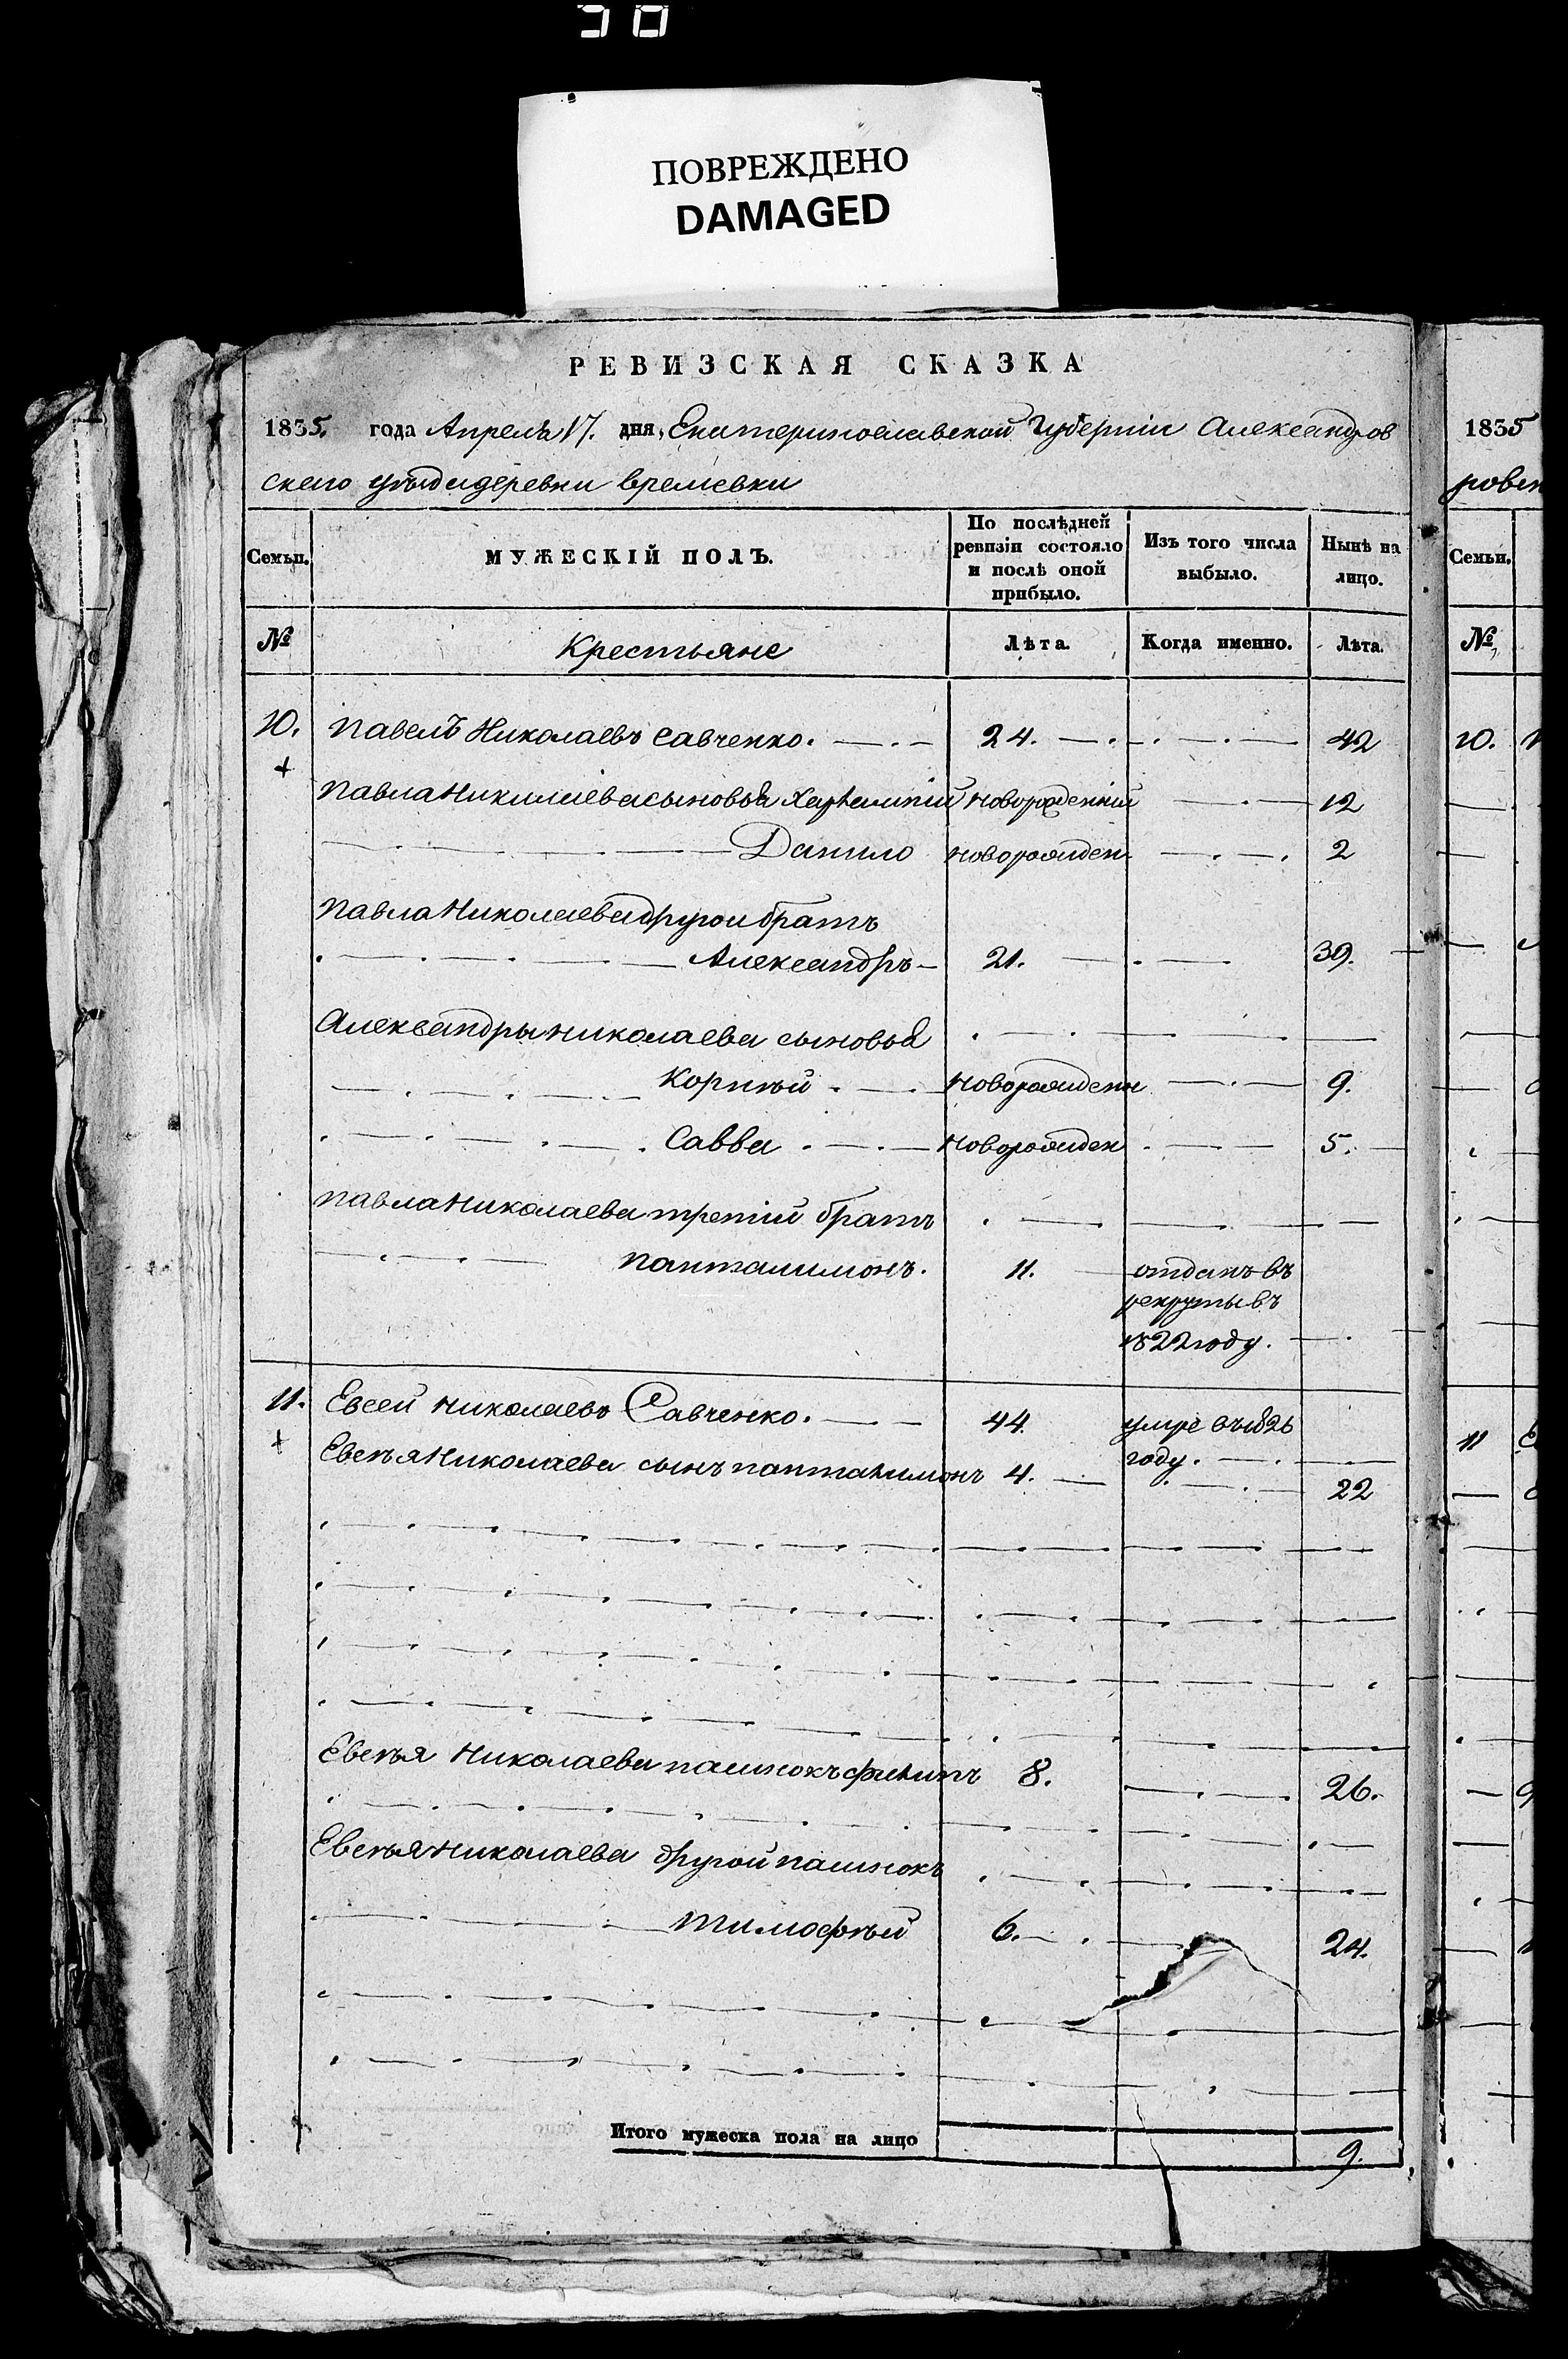 30
ПОВРЕЖДЕНО
DAMAGED
РЕВИЗСКАЯ СКАЗКА
1835. года Апреля 17. дня, Екатеринославской Губернiи Александров
скаго уѣзда деревни Времевки
Семьи. МУЖЕСКIЙ ПОЛЪ. По послѣдней ревизiи состояло и послѣ оной прибыло. Изъ того числа выбыло. Нынѣ на лицо.
№ Крестьяне Лѣта. Когда именно. Лѣта.
10. Павелъ Николаевъ Савченко. 24. 42
Павла Николаева сыновья Харлампiй новорожденный 12
Данило новорожден 2
Павла Николаева другой братъ
Александръ 21. 39.
Александры Николаева сыновья
Корнѣй новорожденн 9.
Савва новорожден 5.
Павла Николаева третiй братъ
Панталимонъ. 11. отданъ въ
рекруты въ
1822 году.
11. Евсей Николаевъ Савченко. 44. умре въ 1826
году.
Евсѣя Николаева сынъ Панталимонъ 4. 22
Евсѣя Николаева пасынокъ Филипъ 8. 26.
Евсѣя Николаева другой пасынокъ
Тимофѣй 6. 24.
Итого мужеска пола на лицо 9.
1835
ровск
Семьи.
№
10.
11